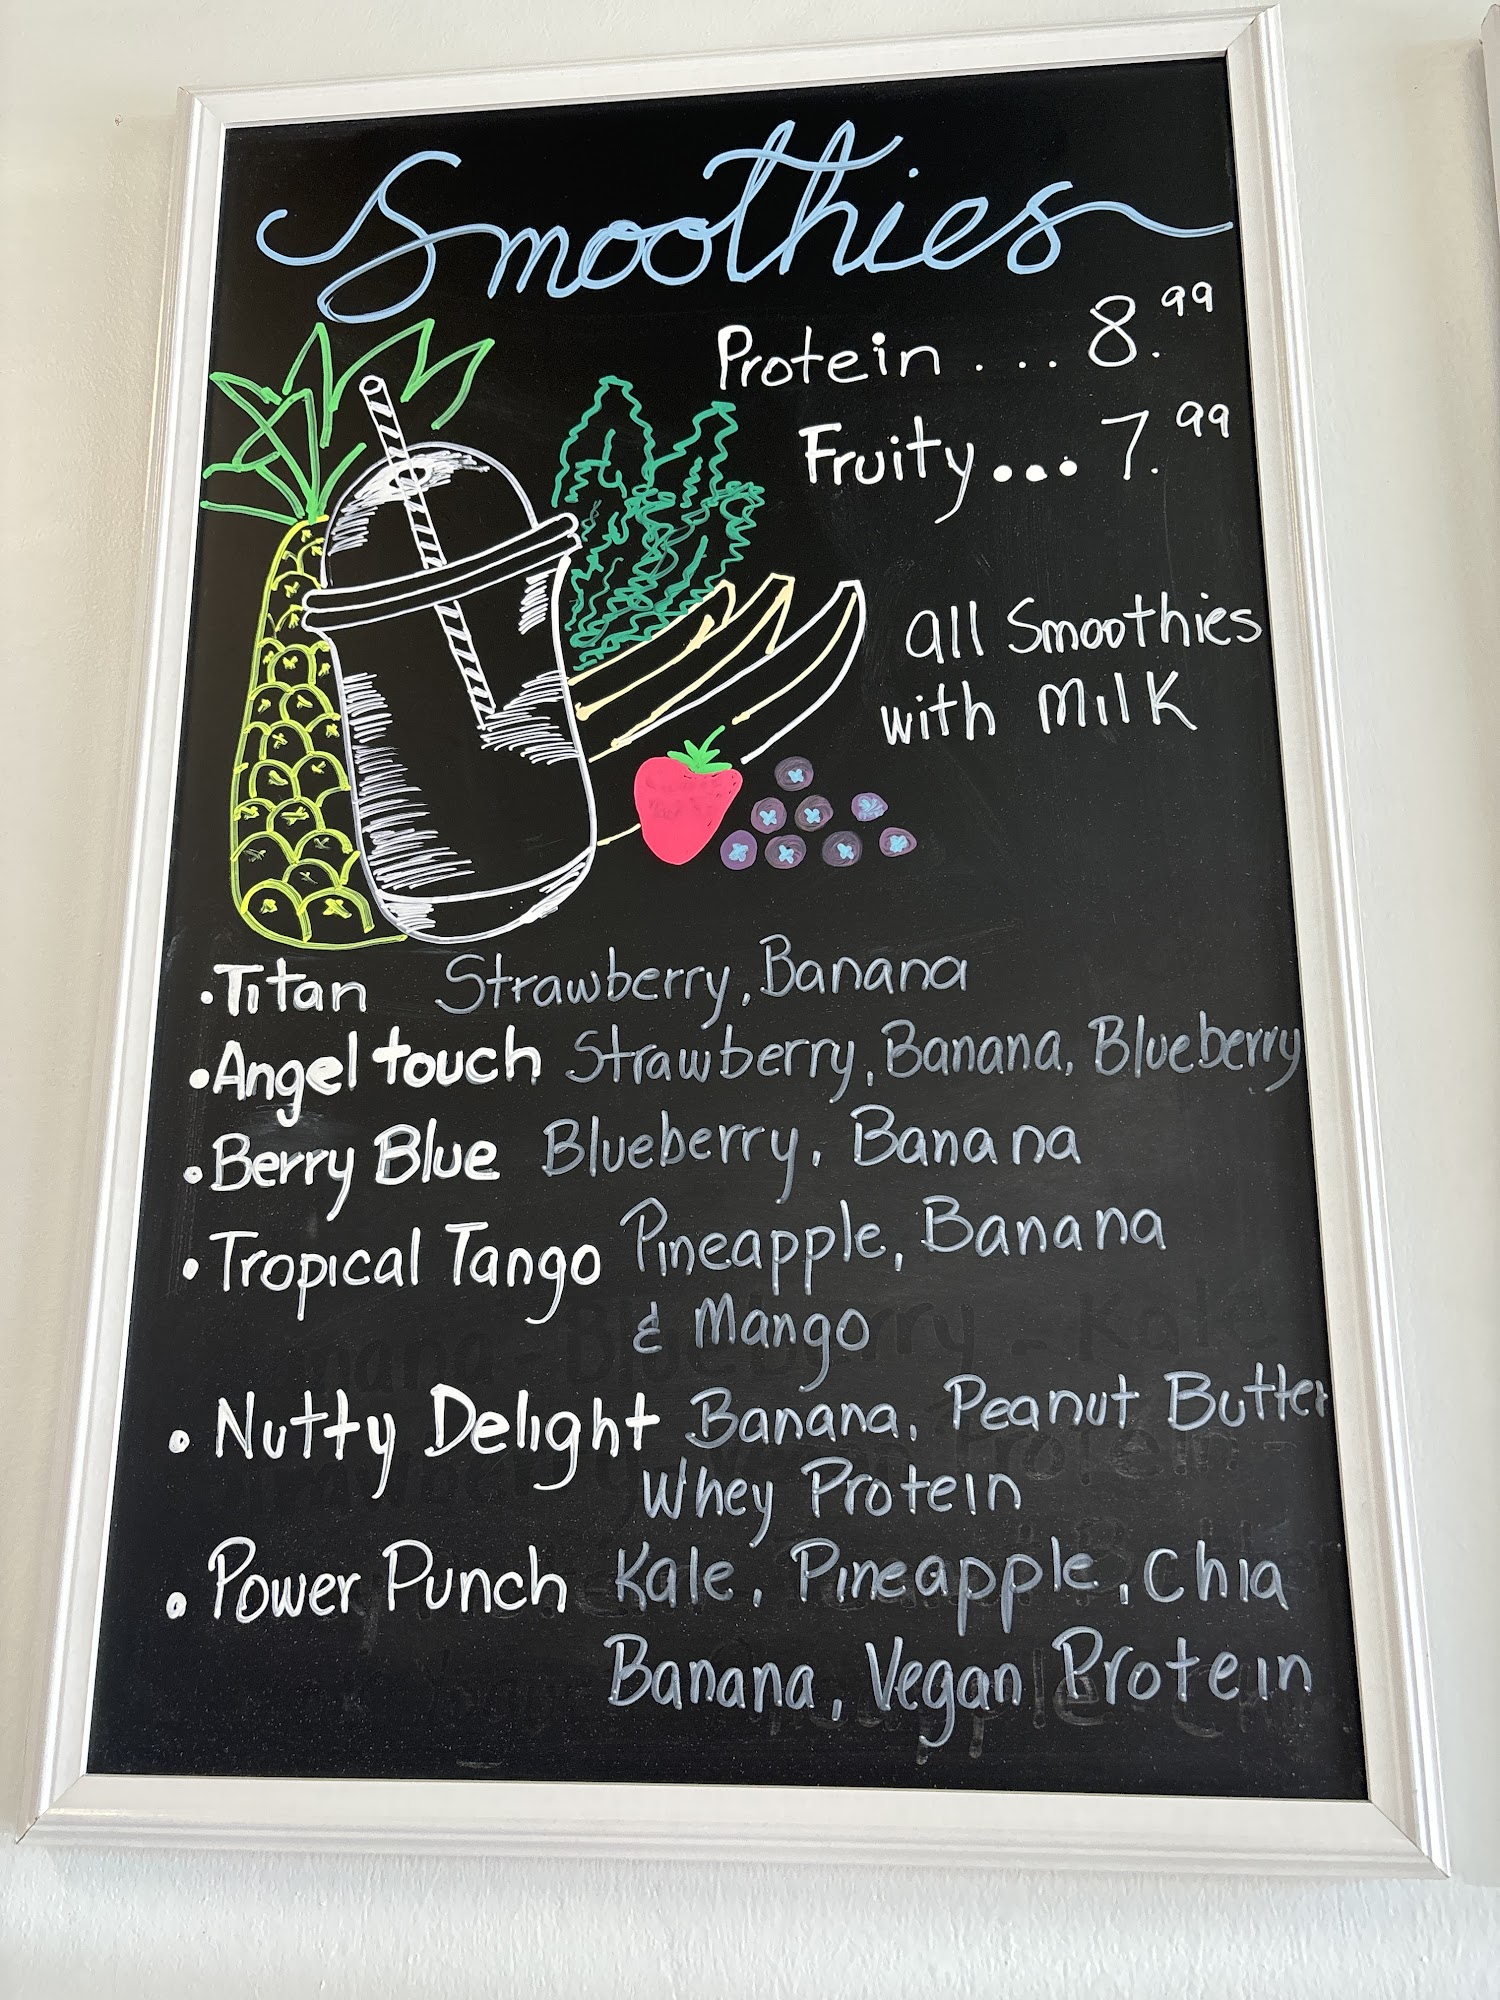 Smoothies
Protein ... 8.99
Fruity ... 7.99
all Smoothies
with Milk
• Titan Strawberry, Banana
• Angel touch Strawberry, Banana, Blueberry
• Berry Blue Blueberry, Banana
• Tropical Tango Pineapple, Banana
& Mango
• Nutty Delight Banana, Peanut Butter
Whey Protein
• Power Punch Kale, Pineapple, Chia
Banana, Vegan Protein